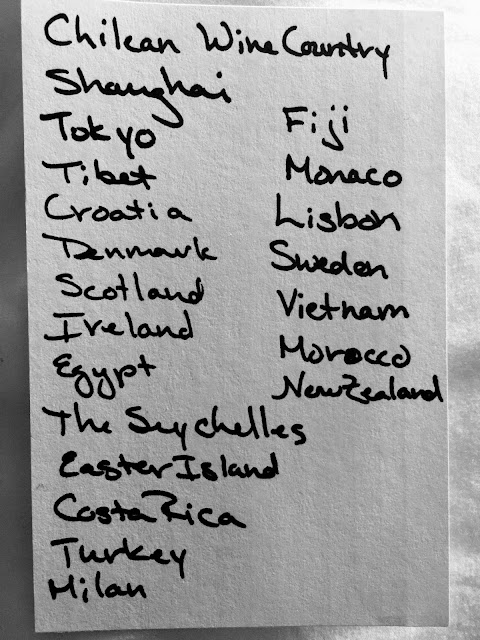 Chilean Wine Country
Shanghai
Tokyo
Tibet
Croatia
Denmark
Scotland
Ireland
Egypt
The Seychelles
Easter Island
Costa Rica
Turkey
Milan
Fiji
Monaco
Lisbon
Sweden
Vietnam
Morocco
New Zealand